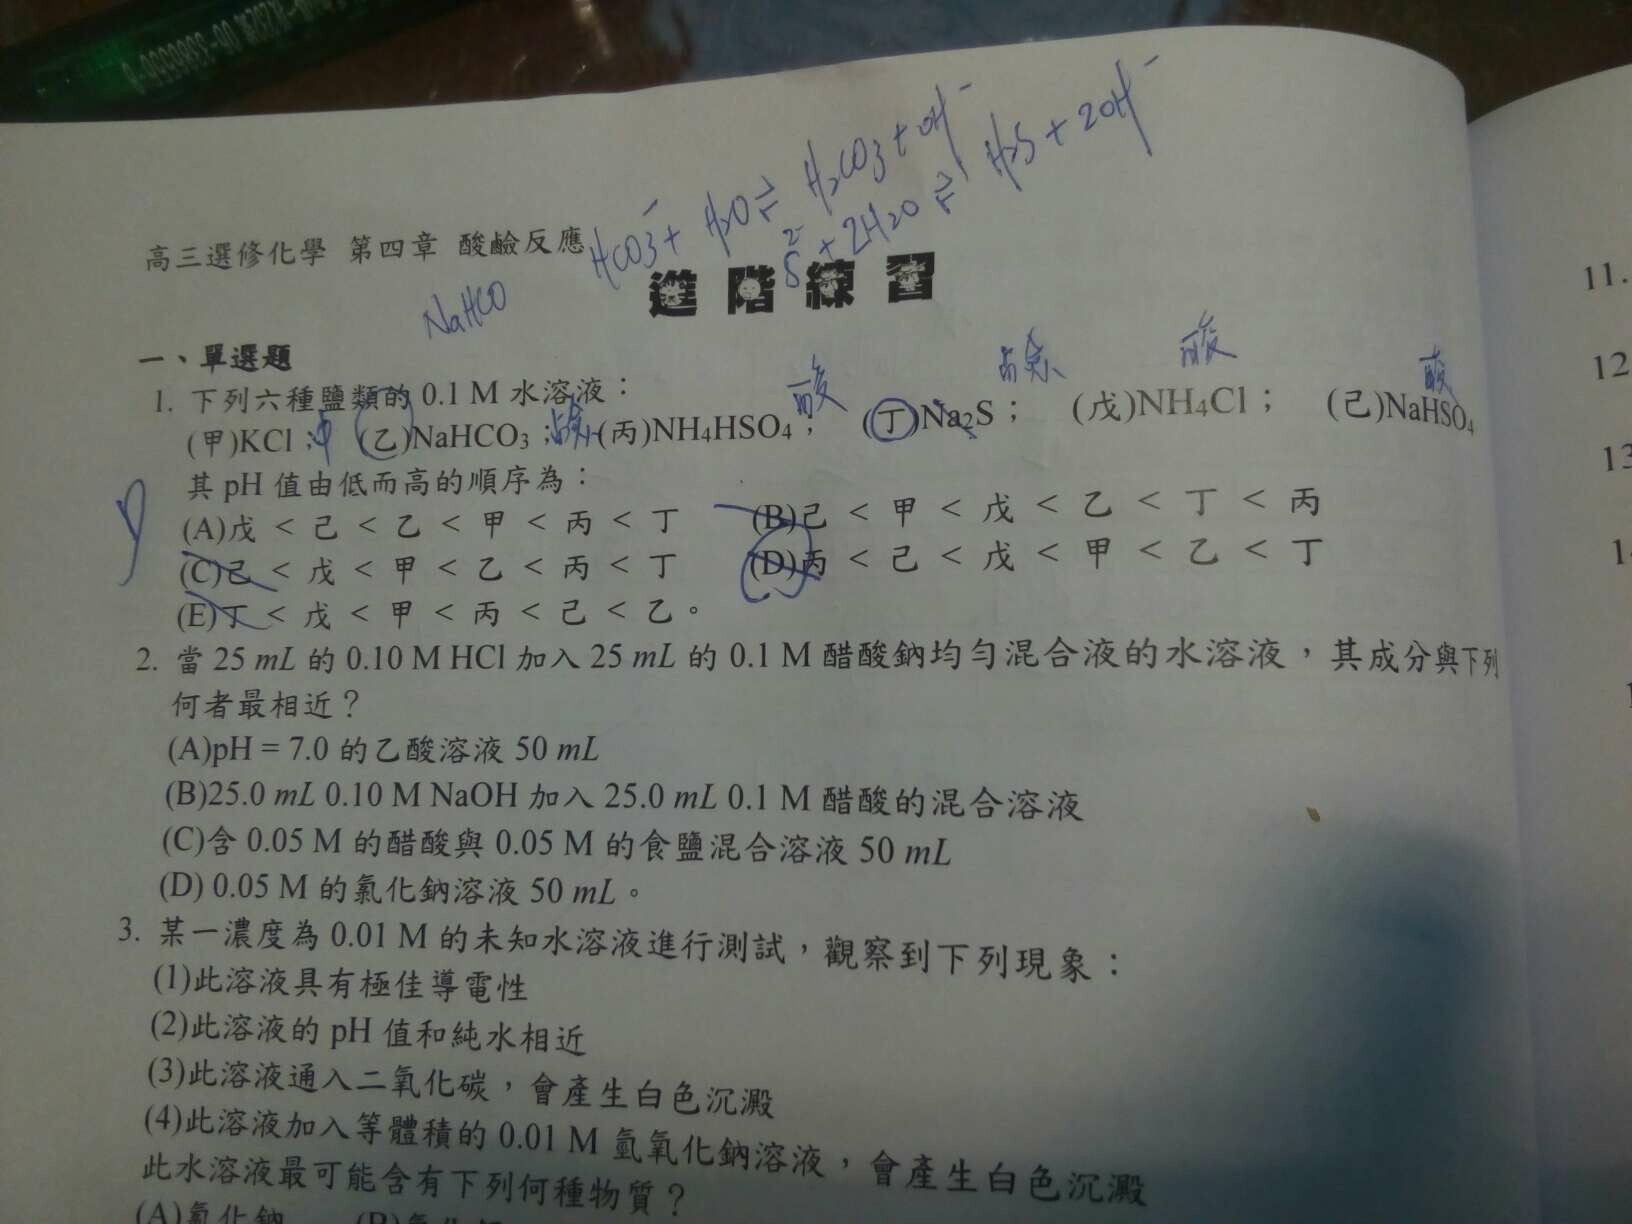 HCO3⁻ + H2O ⇌ H2CO3 + OH⁻
S²⁻ + 2H2O ⇌ H2S + 2OH⁻
高三選修化學 第四章 酸鹼反應
進階練習
NaHCO
一、單選題
酸 鹼 酸 酸
1. 下列六種鹽類的 0.1 M 水溶液：
(甲)KCl；中 (乙)NaHCO3；鹼 (丙)NH4HSO4； (丁)Na2S； (戊)NH4Cl； (己)NaHSO4
其 pH 值由低而高的順序為：
(A)戊 < 己 < 乙 < 甲 < 丙 < 丁 (B)己 < 甲 < 戊 < 乙 < 丁 < 丙
(C)己 < 戊 < 甲 < 乙 < 丙 < 丁 (D)丙 < 己 < 戊 < 甲 < 乙 < 丁
(E)丁 < 戊 < 甲 < 丙 < 己 < 乙。
2. 當 25 mL 的 0.10 M HCl 加入 25 mL 的 0.1 M 醋酸鈉均勻混合液的水溶液，其成分與下列
何者最相近？
(A)pH = 7.0 的乙酸溶液 50 mL
(B)25.0 mL 0.10 M NaOH 加入 25.0 mL 0.1 M 醋酸的混合溶液
(C)含 0.05 M 的醋酸與 0.05 M 的食鹽混合溶液 50 mL
(D) 0.05 M 的氯化鈉溶液 50 mL。
3. 某一濃度為 0.01 M 的未知水溶液進行測試，觀察到下列現象：
(1)此溶液具有極佳導電性
(2)此溶液的 pH 值和純水相近
(3)此溶液通入二氧化碳，會產生白色沉澱
(4)此溶液加入等體積的 0.01 M 氫氧化鈉溶液，會產生白色沉澱
此水溶液最可能含有下列何種物質？
(A)氯化鈉
11.
12
13